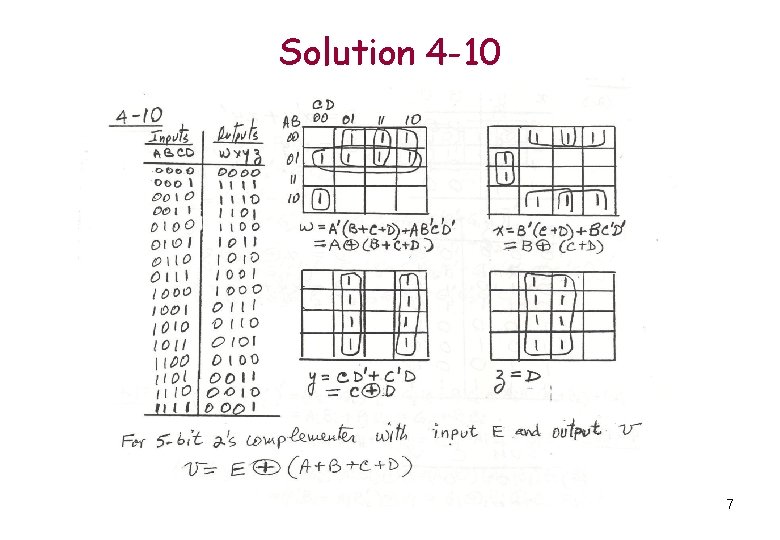 Solution 4-10
4-10
Inputs Outputs
ABCD wxyz
0000 0000
0001 1111
0010 1110
0011 1101
0100 1100
0101 1011
0110 1010
0111 1001
1000 1000
1001 0111
1010 0110
1011 0101
1100 0100
1101 0011
1110 0010
1111 0001
CD
AB 00 01 11 10
00 1 1 1
01 1 1 1 1
11
10 1
w = A'(B+C+D)+AB'C'D'
= A⊕(B+C+D)
1 1 1
1
1
1 1 1
x = B'(C+D)+BC'D'
= B⊕(C+D)
1 1
1 1
1 1
1 1
y = CD'+C'D
= C⊕D
1 1
1 1
1 1
1 1
z = D
For 5-bit 2's complementer with input E and output v
v = E⊕(A+B+C+D)
7